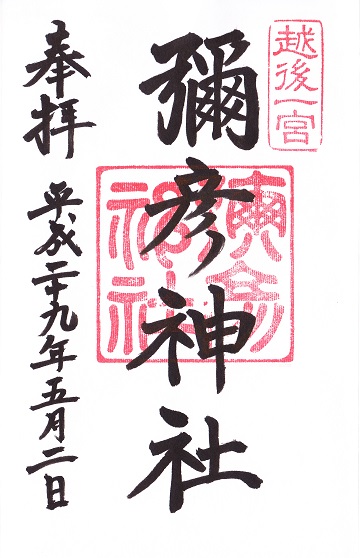 越後一宮
彌彦神社
奉拝
平成二十九年五月二日